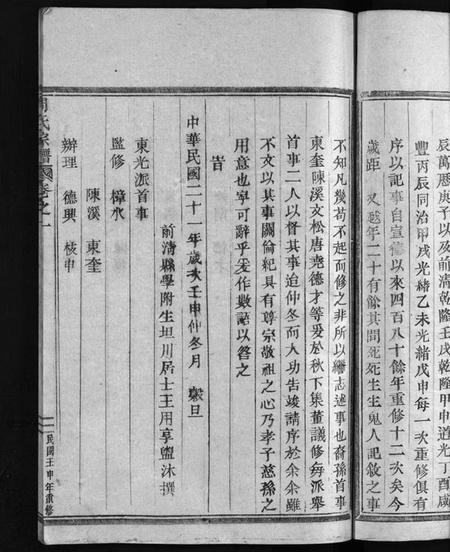 辰萬曆庚子以及前清乾隆甲申道光丁酉咸
豐丙辰同治甲戌光緒乙未光緒戊申每一次重修俱有
序以記事自宣德以來四百八十餘年重修十二次矣今
歲距又越年二十有餘其間死死生生鬼人記敘之事
不知凡幾苟不起而修之非所以繼志述事也裔孫首事
東奎陳溪文松唐堯德才等爰於秋下集董議修每派舉
首事二人以督其事迨仲冬而大功告竣請序於余余雖
不文以其事關倫紀具有尊宗敬祖之心乃孝子慈孫之
用意也寧可辭乎爰作數語以咎之
旹
中華民國二十一年歲次壬申仲冬月 穀旦
前清縣學附生坦川居士王用享盥沐撰
東光派首事
監修 樟水
陳溪 東奎
辦理 德興 枝申
氏宗譜 卷之一
民國壬申年重修